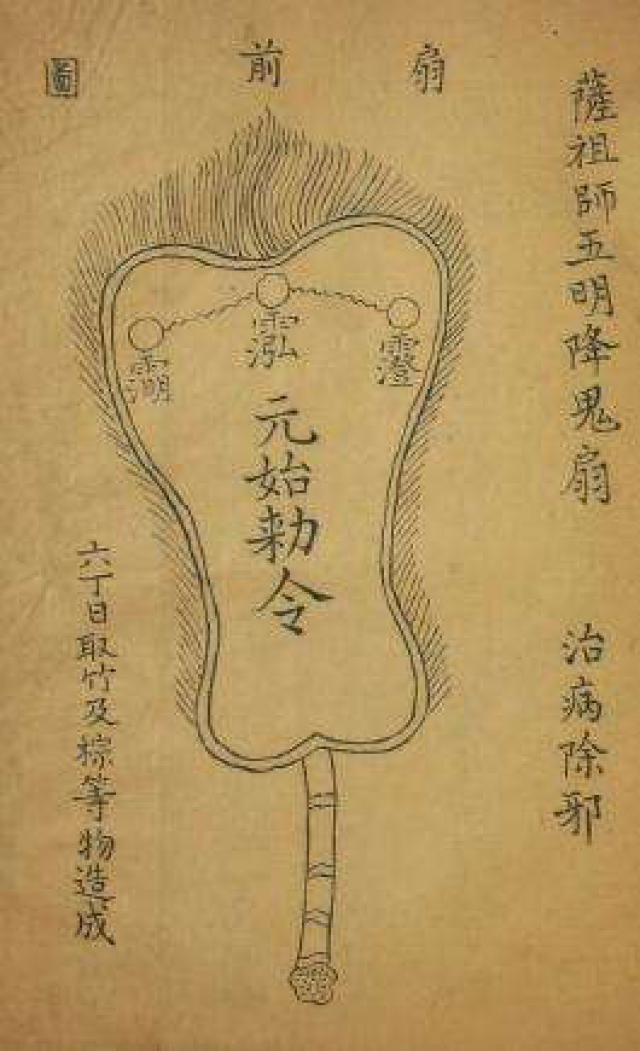 薩祖師五明降鬼扇
治病除邪
扇前圖
元始勅令
六丁日取竹及棕等物造成